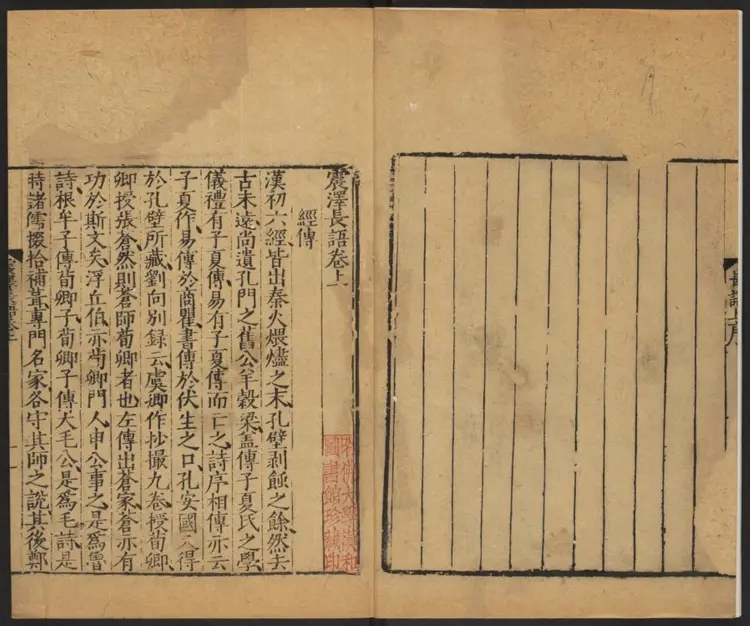 長語上序
震澤長語卷上
經傳
漢初六經皆出秦火煨燼之末孔壁剥蝕之餘然去
古未遠尚遺孔門之舊公羊穀梁盖傳子夏氏之學
儀禮有子夏傳易有子夏傳而亡之詩序相傳亦云
子夏作易傳於商瞿書傳於伏生之口孔安國又得
於孔壁所藏劉向别録云虞卿作抄撮九卷授荀卿
卿授張蒼然則蒼師荀卿者也左傳出蒼家蒼亦有
功於斯文矣浮丘伯亦荀卿門人申公事之是爲魯
詩根牟子傳荀卿子荀卿子傳大毛公是爲毛詩是
時諸儒掇拾補葺專門名家各守其師之說其後鄭
哈佛大學漢和
圖書館珍藏印